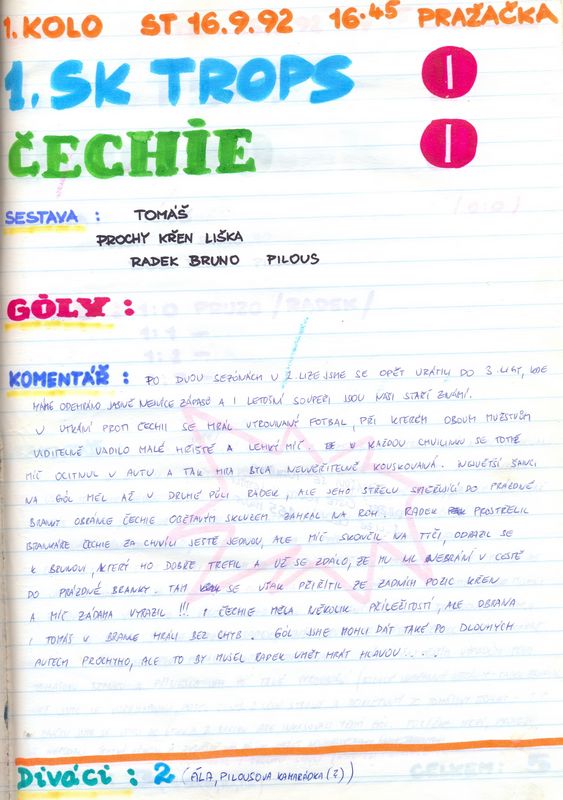 1. KOLO ST 16.9.92 16.45 PRAŽAČKA
1. SK TROPS 1
ČECHIE 1
SESTAVA : TOMÁŠ
PROCHY KŘEN LIŠKA
RADEK BRUNO PILOUS
GÓLY :
KOMENTÁŘ : PO DVOU SEZÓNÁCH V 2. LIZE JSME SE OPĚT VRÁTILI DO 3. LIGY, KDE
MÁME ODEHRÁNO JASNĚ NEJVÍCE ZÁPASŮ A I LETOŠNÍ SOUPEŘI JSOU NAŠI STAŘÍ ZNÁMÍ.
V UTKÁNÍ PROTI ČECHII SE HRÁL VYROVNANÝ FOTBAL, PŘI KTERÉM OBOUM MUŽSTVŮM
VIDITELNĚ VADILO MALÉ HŘIŠTĚ A LEHKÝ MÍČ. V KAŽDOU CHVILINKU SE TOTIŽ
MÍČ OCITNUL V AUTU A TAK HRA BYLA NEUVĚŘITELNĚ KOUSKOVANÁ. NEJVĚTŠÍ ŠANCI
NA GÓL MĚL AŽ V DRUHÉ PŮLI RADEK, ALE JEHO STŘELU SMĚŘUJÍCÍ DO PRÁZDNÉ
BRANKY OBRÁNCE ČECHIE OBĚTAVÝM SKLUZEM ZAHRÁL NA ROH. RADEK PROSTŘELIL
BRANKÁŘE ČECHIE ZA CHVÍLI JEŠTĚ JEDNOU, ALE MÍČ SKONČIL NA TYČI, ODRAZIL SE
K BRUNOVI, KTERÝ HO DOBŘE TREFIL A UŽ SE ZDÁLO, ŽE MU NIC NEBRÁNÍ V CESTĚ
DO PRÁZDNÉ BRANKY. TAM SE VŠAK PŘIŘÍTIL ZE ZADNÍCH POZIC KŘEN
A MÍČ ZÁDAMA VYRAZIL !!! I ČECHIE MĚLA NĚKOLIK PŘÍLEŽITOSTÍ, ALE OBRANA
I TOMÁŠ V BRANCE HRÁLI BEZ CHYB. GÓL JSME MOHLI DÁT TAKÉ PO DLOUHÝCH
AUTECH PROCHYHO, ALE TO BY MUSEL RADEK UMĚT HRÁT HLAVOU . . . .
Diváci : 2 (ÁLA, PILOUSOVA KAMARÁDKA (?))